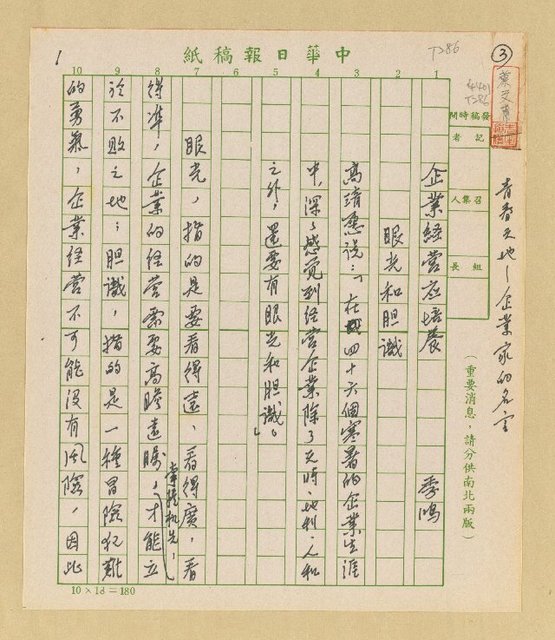 中華日報稿紙
T286
③
4401
T286
發稿時間
記者
召集人
組長
(重要消息,請分供南北兩版)
青春天地—企業家的名言
企業經營应培養
眼光和胆識
季鳴
高清愿說:「在我四十六個寒暑的企業生涯
中,深深感覺到經营企業除了天時、地利、人和
之外,還要有眼光和胆識。」
眼光,指的是要看得遠、看得廣,看
得準,企業的經营需要高瞻遠矚,掌握机先,才能立
於不敗之地;胆識,指的是一種冒險犯難
的勇氣,企業経营不可能沒有風險,因此
1
10 9 8 7 6 5 4 3 2 1
10×18=180